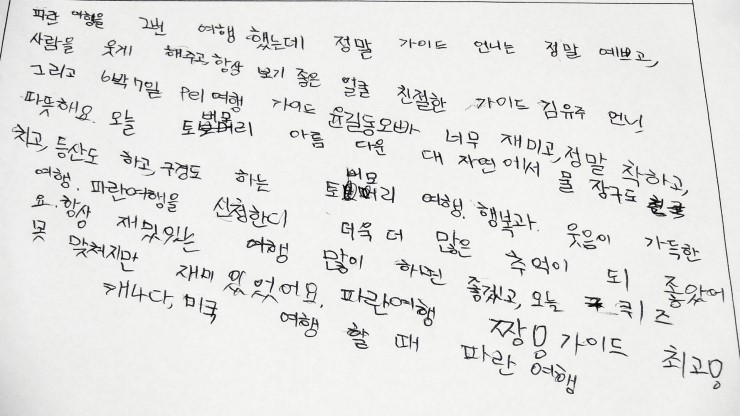 파란 여행을 2번 여행 했는데 정말 가이드 언니는 정말 예쁘고,
사람을 웃게 해주고, 항상 보기 좋은 얼굴 친절한 가이드 김유주 언니
그리고 6박7일 PeI 여행 가이드 윤길동오빠 너무 재미고, 정말 착하고,
따뜻해요. 오늘 토버모리 아름 다운 대 자연에서 물 장구도
치고, 등산도 하고, 구경도 하는 토버모리 여행. 행복과 웃음이 가득한
여행. 파란여행을 신청한디 더욱 더 많은 추억이 되 좋았어
요. 항상 재밌있는 여행 많이 하면 좋겠고, 오늘 퀴즈
못 맞쳐지만 재미 있었어요. 파란여행 짱! 가이드 최고!
캐나다, 미국 여행 할 때 파란 여행